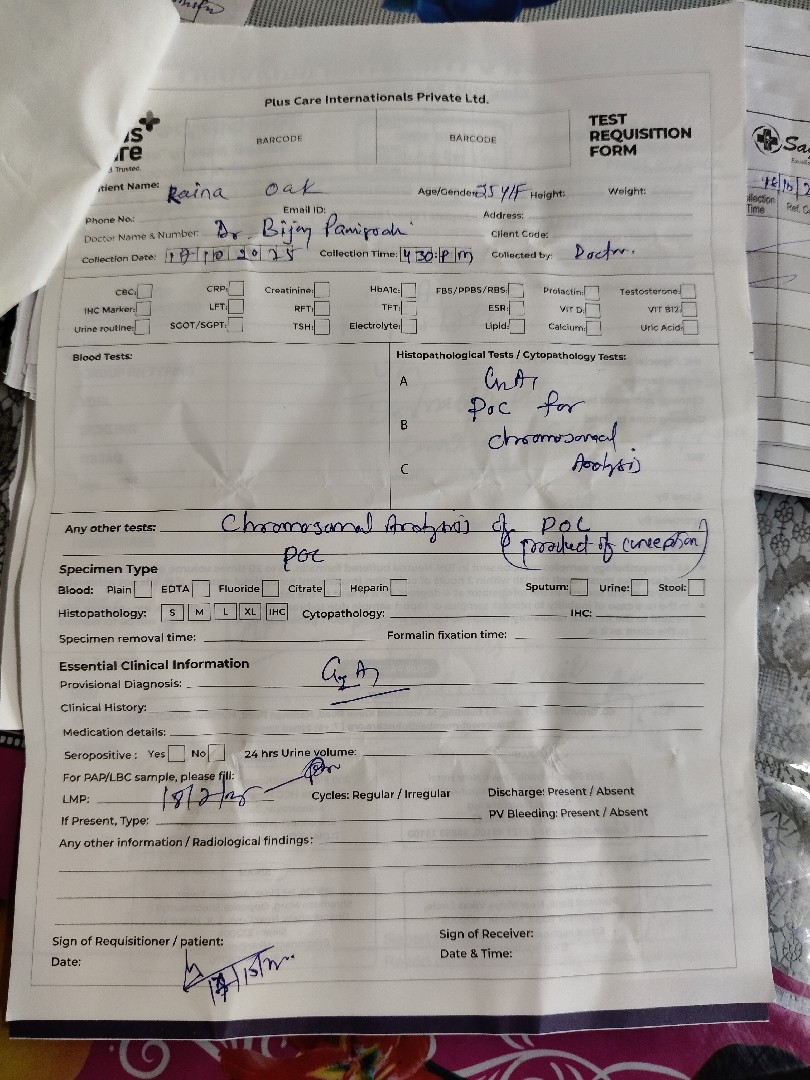 Plus Care Internationals Private Ltd.
us
re
d Trusted.
BARCODE
BARCODE
TEST
REQUISITION
FORM
tient Name: Raina Oak Age/Gender: 35 Y/F Height: Weight:
Phone No.: Email ID: Address:
Doctor Name & Number: Dr. Bijoy Client Code:
Collection Date: 17 10 2025 Collection Time: 4 30 : P m Collected by: Doctor.
CBC: CRP: Creatinine: HbA1c: FBS/PPBS/RBS: Prolactin: Testosterone:
IHC Marker: LFT: RFT: TFT: ESR: VIT D: VIT B12:
Urine routine: SGOT/SGPT: TSH: Electrolyte: Lipid: Calcium: Uric Acid:
Blood Tests:
Histopathological Tests / Cytopathology Tests:
A
POC for
B
chromosomal
C Analysis
Any other tests: Chromosomal Analysis of POC
POC (product of conception)
Specimen Type
Blood: Plain EDTA Fluoride Citrate Heparin Sputum: Urine: Stool:
Histopathology: S M L XL IHC Cytopathology: IHC:
Specimen removal time: Formalin fixation time:
Essential Clinical Information
Provisional Diagnosis:
Clinical History:
Medication details:
Seropositive : Yes No 24 hrs Urine volume:
For PAP/LBC sample, please fill:
LMP: 18/2/25 Cycles: Regular / Irregular Discharge: Present / Absent
If Present, Type: PV Bleeding: Present / Absent
Any other information / Radiological findings:
Sign of Requisitioner / patient: Sign of Receiver:
Date: Date & Time:
Sa
llection
Time
Ref.